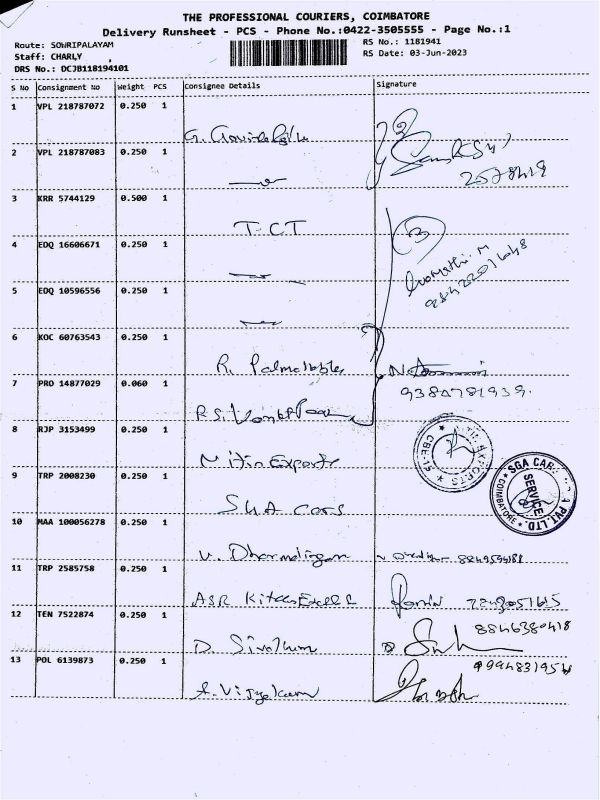 THE PROFESSIONAL COURIERS, COIMBATORE
Delivery Runsheet - PCS - Phone No.:0422-3505555 - Page No.:1
Route: SOWRIPALAYAM
Staff: CHARLY
DRS No.: DCJB118194101
RS No.: 1181941
RS Date: 03-Jun-2023
S No Consignment No Weight PCS Consignee Details Signature
1 VPL 218787072 0.250 1
2 VPL 218787083 0.250 1
3 KRR 5744129 0.500 1 T.CT
4 EDQ 16606671 0.250 1
5 EDQ 10596556 0.250 1
6 KOC 60763543 0.250 1 R.
7 PRO 14877029 0.060 1 R.S.
8 RJP 3153499 0.250 1 Nitin Exports
9 TRP 2008230 0.250 1 SGA cars
10 MAA 100056278 0.250 1 V. Dharmalingam
11 TRP 2585758 0.250 1 ASR
12 TEN 7522874 0.250 1 D. 8846380418
13 POL 6139873 0.250 1 A. Vijayakum
SGA CAR
SERVICE
COIMBATORE
PVT. LTD.